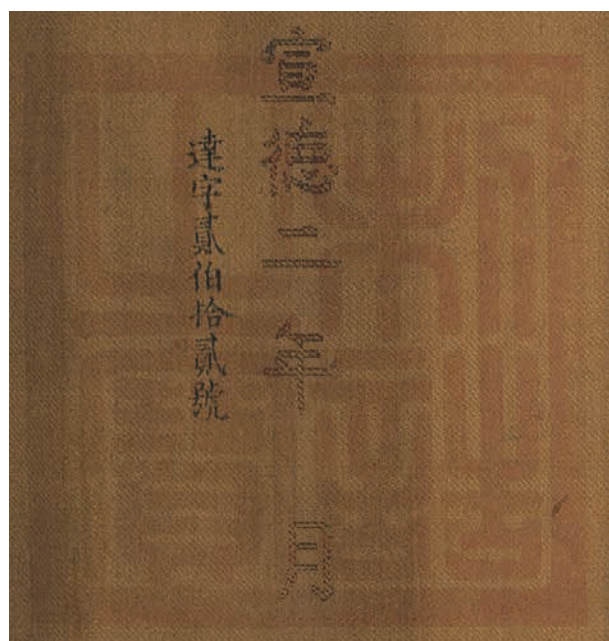 宣德二年 月
達字貳伯拾貳號